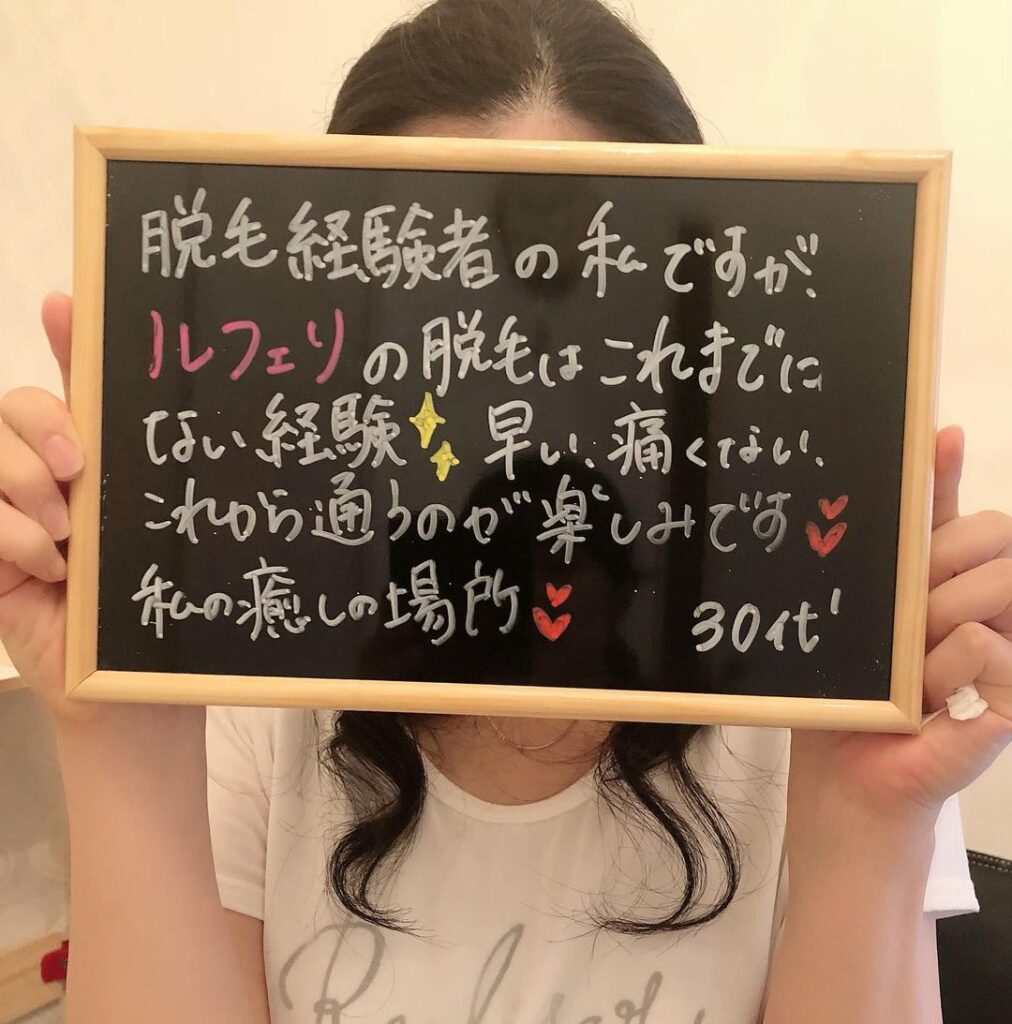 脱毛経験者の私ですが、
ルフェリの脱毛はこれまでに
ない経験 早い、痛くない、
これから通うのが楽しみです
私の癒しの場所
30代